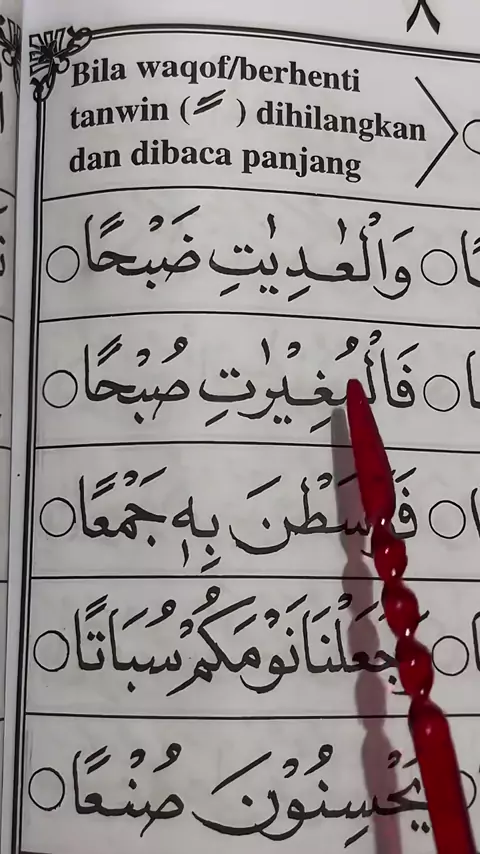 ٨
Bila waqof/berhenti
tanwin ( ـً ) dihilangkan
dan dibaca panjang
وَالْعٰدِيٰتِ ضَبْحًا
فَالْمُغِيْرٰتِ صُبْحًا
فَوَسَطْنَ بِهٖ جَمْعًا
وَجَعَلْنَا نَوْمَكُمْ سُبَاتًا
يُحْسِنُوْنَ صُنْعًا